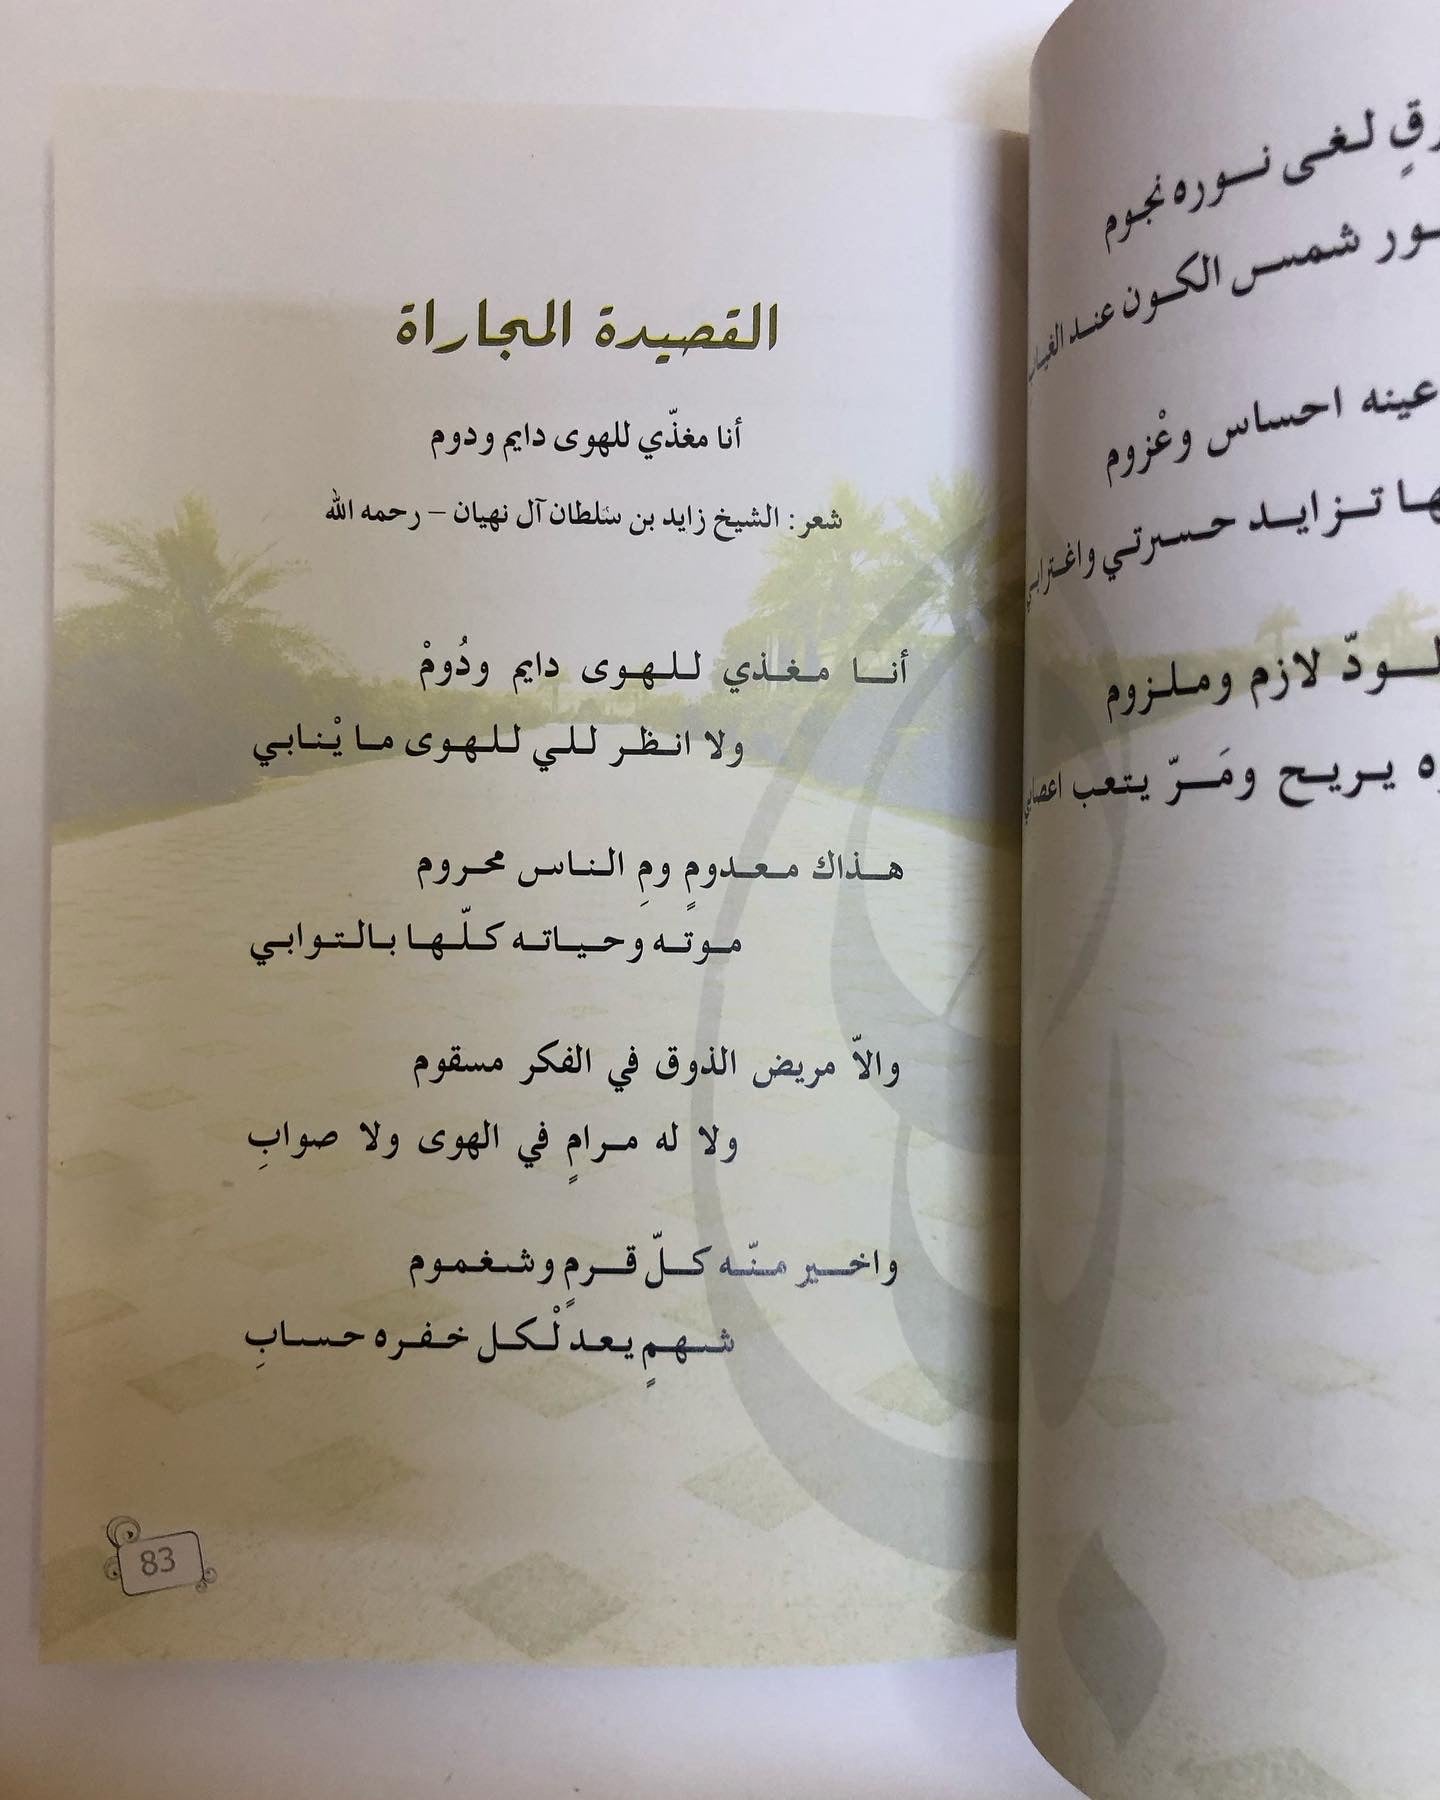 القصيدة المجاراة
أنا مغذّي للهوى دايم ودوم
شعر: الشيخ زايد بن سلطان آل نهيان – رحمه الله
أنا مغذي للهوى دايم ودُومْ
ولا انظر للي للهوى ما يْنابي
هذاك معدومٍ ومِ الناس محروم
موته وحياته كلّها بالتوابي
والاّ مريض الذوق في الفكر مسقوم
ولا له مرامٍ في الهوى ولا صوابِ
واخير منّه كلّ قرمٍ وشغموم
شهمٍ يعد لْكل خفره حسابِ
83
لغى نوره نجوم
شمس الكون عند الغياب
عينه احساس وعْزوم
تزايد حسرتي واغترابي
لازم وملزوم
يريح ومَرّ يتعب اعصابي